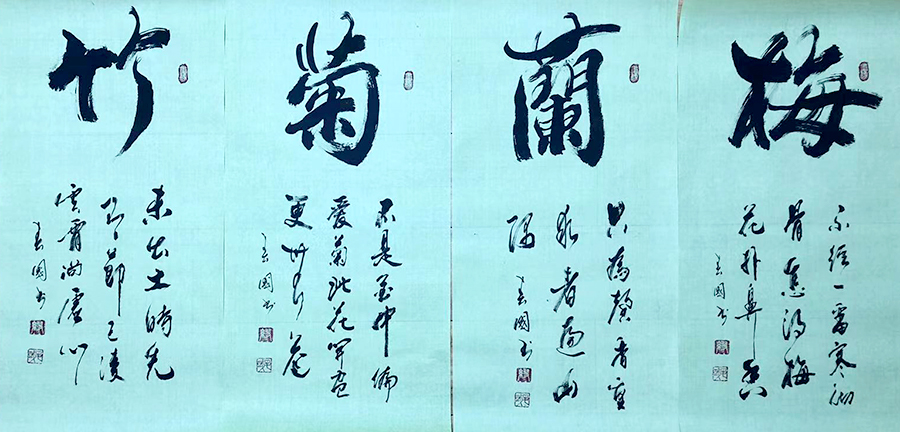 梅
不经一番寒彻
骨怎得梅
花扑鼻香
國书
蘭
只為馨香重
求者遍山
隅
國书
菊
不是花中偏
愛菊此花開盡
更無花
國书
竹
未出土時先
有節已凌
雲霄尚虛心
國书